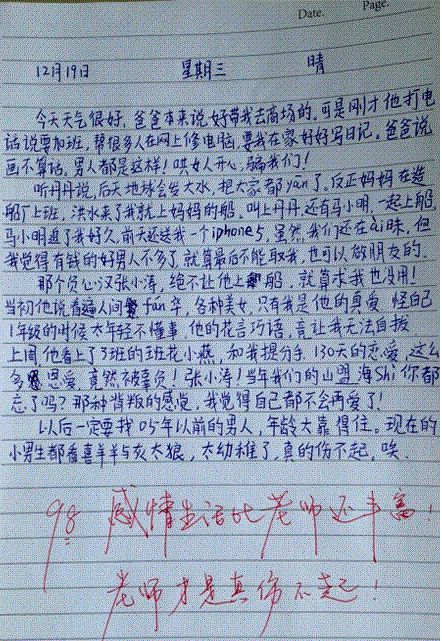 Date. Page.
12月19日 星期三 晴
今天天气很好，爸爸本来说好带我去商场的，可是刚才他打电
话说要加班，帮很多人在网上修电脑，要我在家好好写日记。爸爸说
画不算话，男人都是这样！哄女人开心，骗我们！
听丹丹说，后天地球会发大水，把大家都yān了，反正妈妈在造
船厂上班，洪水来了我就上妈妈的船。叫上丹丹，还有马小明，一起上船，
马小明追了我好久，前天还送我一个iphone5，虽然我们还在ài昧，但
我觉得有钱的好男人不多了，就算最后不能取我，也可以做朋友的。
那个负心汉张小涛，绝不让他上船，就算求我也没用！
当初他说看遍人间fán华，各种美女，只有我是他的真爱，怪自己
1年级的时候太年轻不懂事，他的花言巧语，竟让我无法自拔
上周他看上了3班的班花小燕，和我提分手，130天的恋爱，这么
多恩爱，竟然不被辜负！张小涛！当年我们的山盟海Shì你都
忘了吗？那种背叛的感觉，我觉得自己都不会再爱了！
以后一定要找05年以前的男人，年龄大靠得住。现在的
小男生都看喜羊羊与灰太狼，太幼稚了，真的伤不起，唉．
98 感情生活比老师还丰富！
老师才是真伤不起！